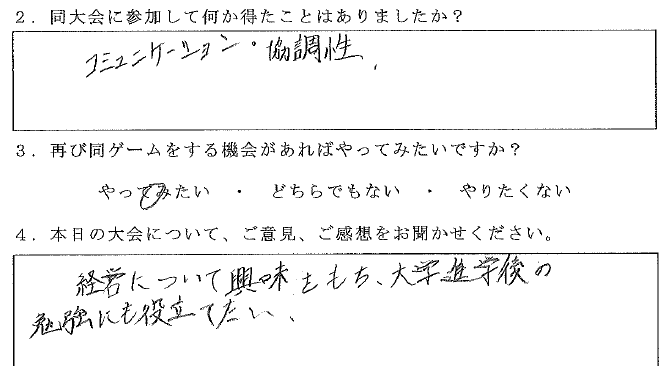 2．同大会に参加して何か得たことはありましたか？
コミュニケーション・協調性、
3．再び同ゲームをする機会があればやってみたいですか？
やってみたい ・ どちらでもない ・ やりたくない
4．本日の大会について、ご意見、ご感想をお聞かせください。
経営について興味をもち、大学進学後の
勉強にも役立てたい、